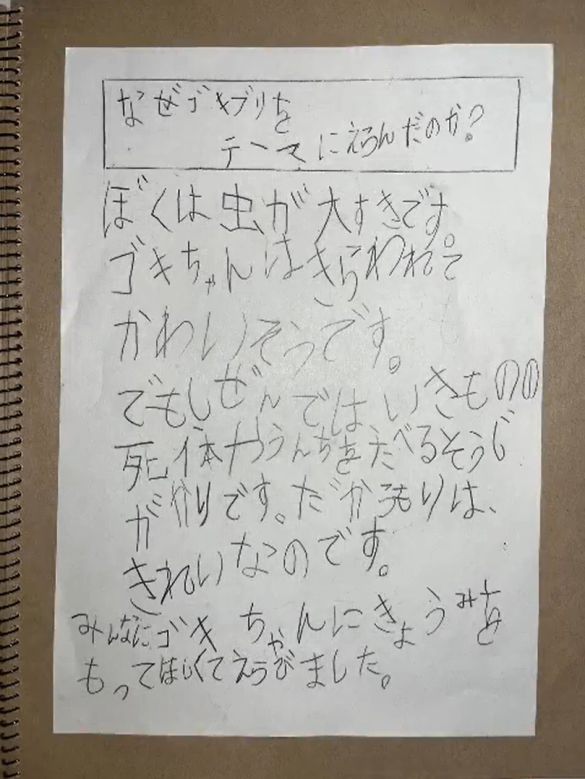 なぜゴキブリを
テーマにえらんだのか?
ぼくは虫が大すきです。
ゴキちゃんはきらわれて
かわいそうです。
でもしぜんではいきものの
死体やうんちをたべるそうじ
がかりです。だから森は、
きれいなのです。
みんなにゴキちゃんにきょうみを
もってほしくてえらびました。